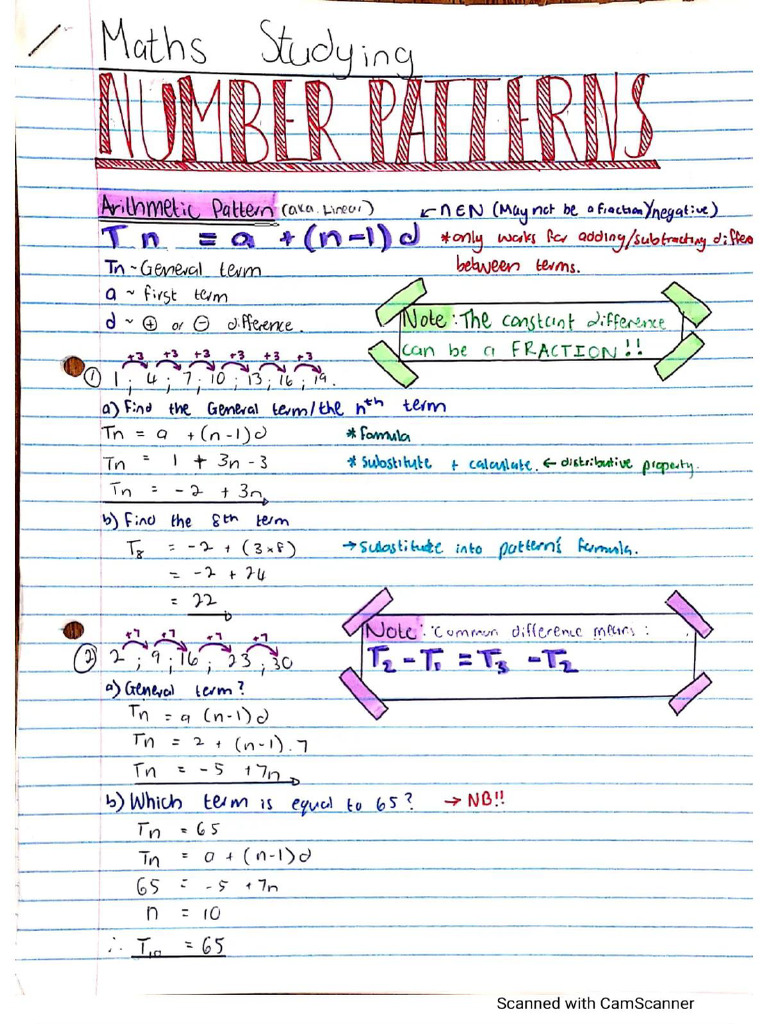 Maths Studying
NUMBER PATTERNS
Arithmetic Pattern (aka. Linear) ← n∈N (May not be a fraction/negative)
Tn = a + (n-1)d *only works for adding/subtracting differe
between terms.
Tn ~ General term
a ~ first term
d ~ ⊕ or ⊖ difference.
Note: The constant difference
can be a FRACTION!!
+3 +3 +3 +3 +3 +3
① 1; 4; 7; 10; 13; 16; 19.
a) Find the General term/the nth term
Tn = a + (n-1)d *formula
Tn = 1 + 3n - 3 *substitute + calculate. ← distributive property.
Tn = -2 + 3n
b) Find the 8th term
T8 = -2 + (3×8) → Substitute into pattern's formula.
= -2 + 24
= 22
Note: Common difference means:
T2 - T1 = T3 - T2
+7 +7 +7 +7
② 2; 9; 16; 23; 30
a) General term?
Tn = a (n-1)d
Tn = 2 + (n-1).7
Tn = -5 + 7n
b) Which term is equal to 65? → NB!!
Tn = 65
Tn = a + (n-1)d
65 = -5 + 7n
n = 10
∴ T10 = 65
Scanned with CamScanner